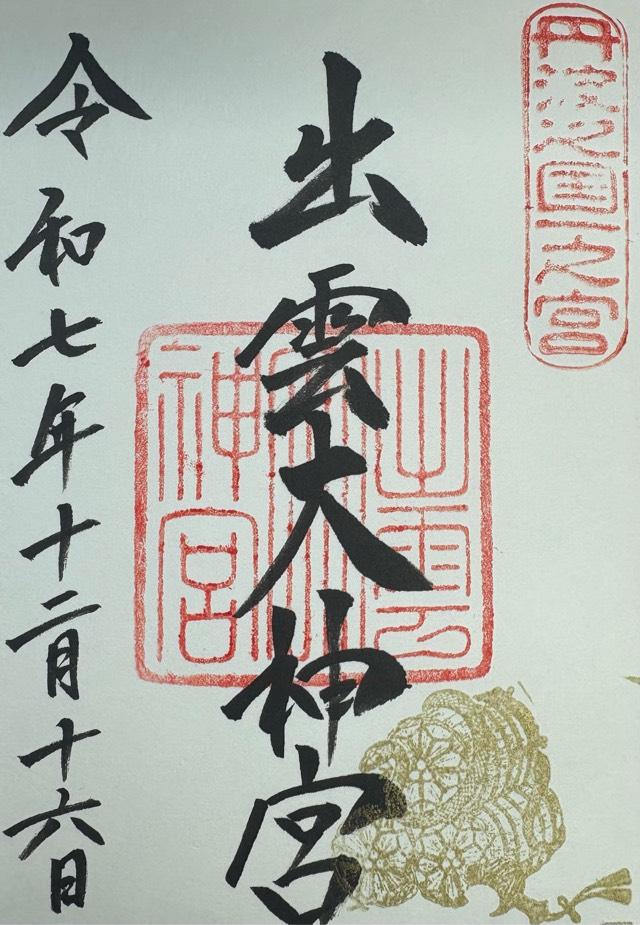 丹波國一之宮
出雲大神宮
出雲大神宮
令和七年十二月十六日